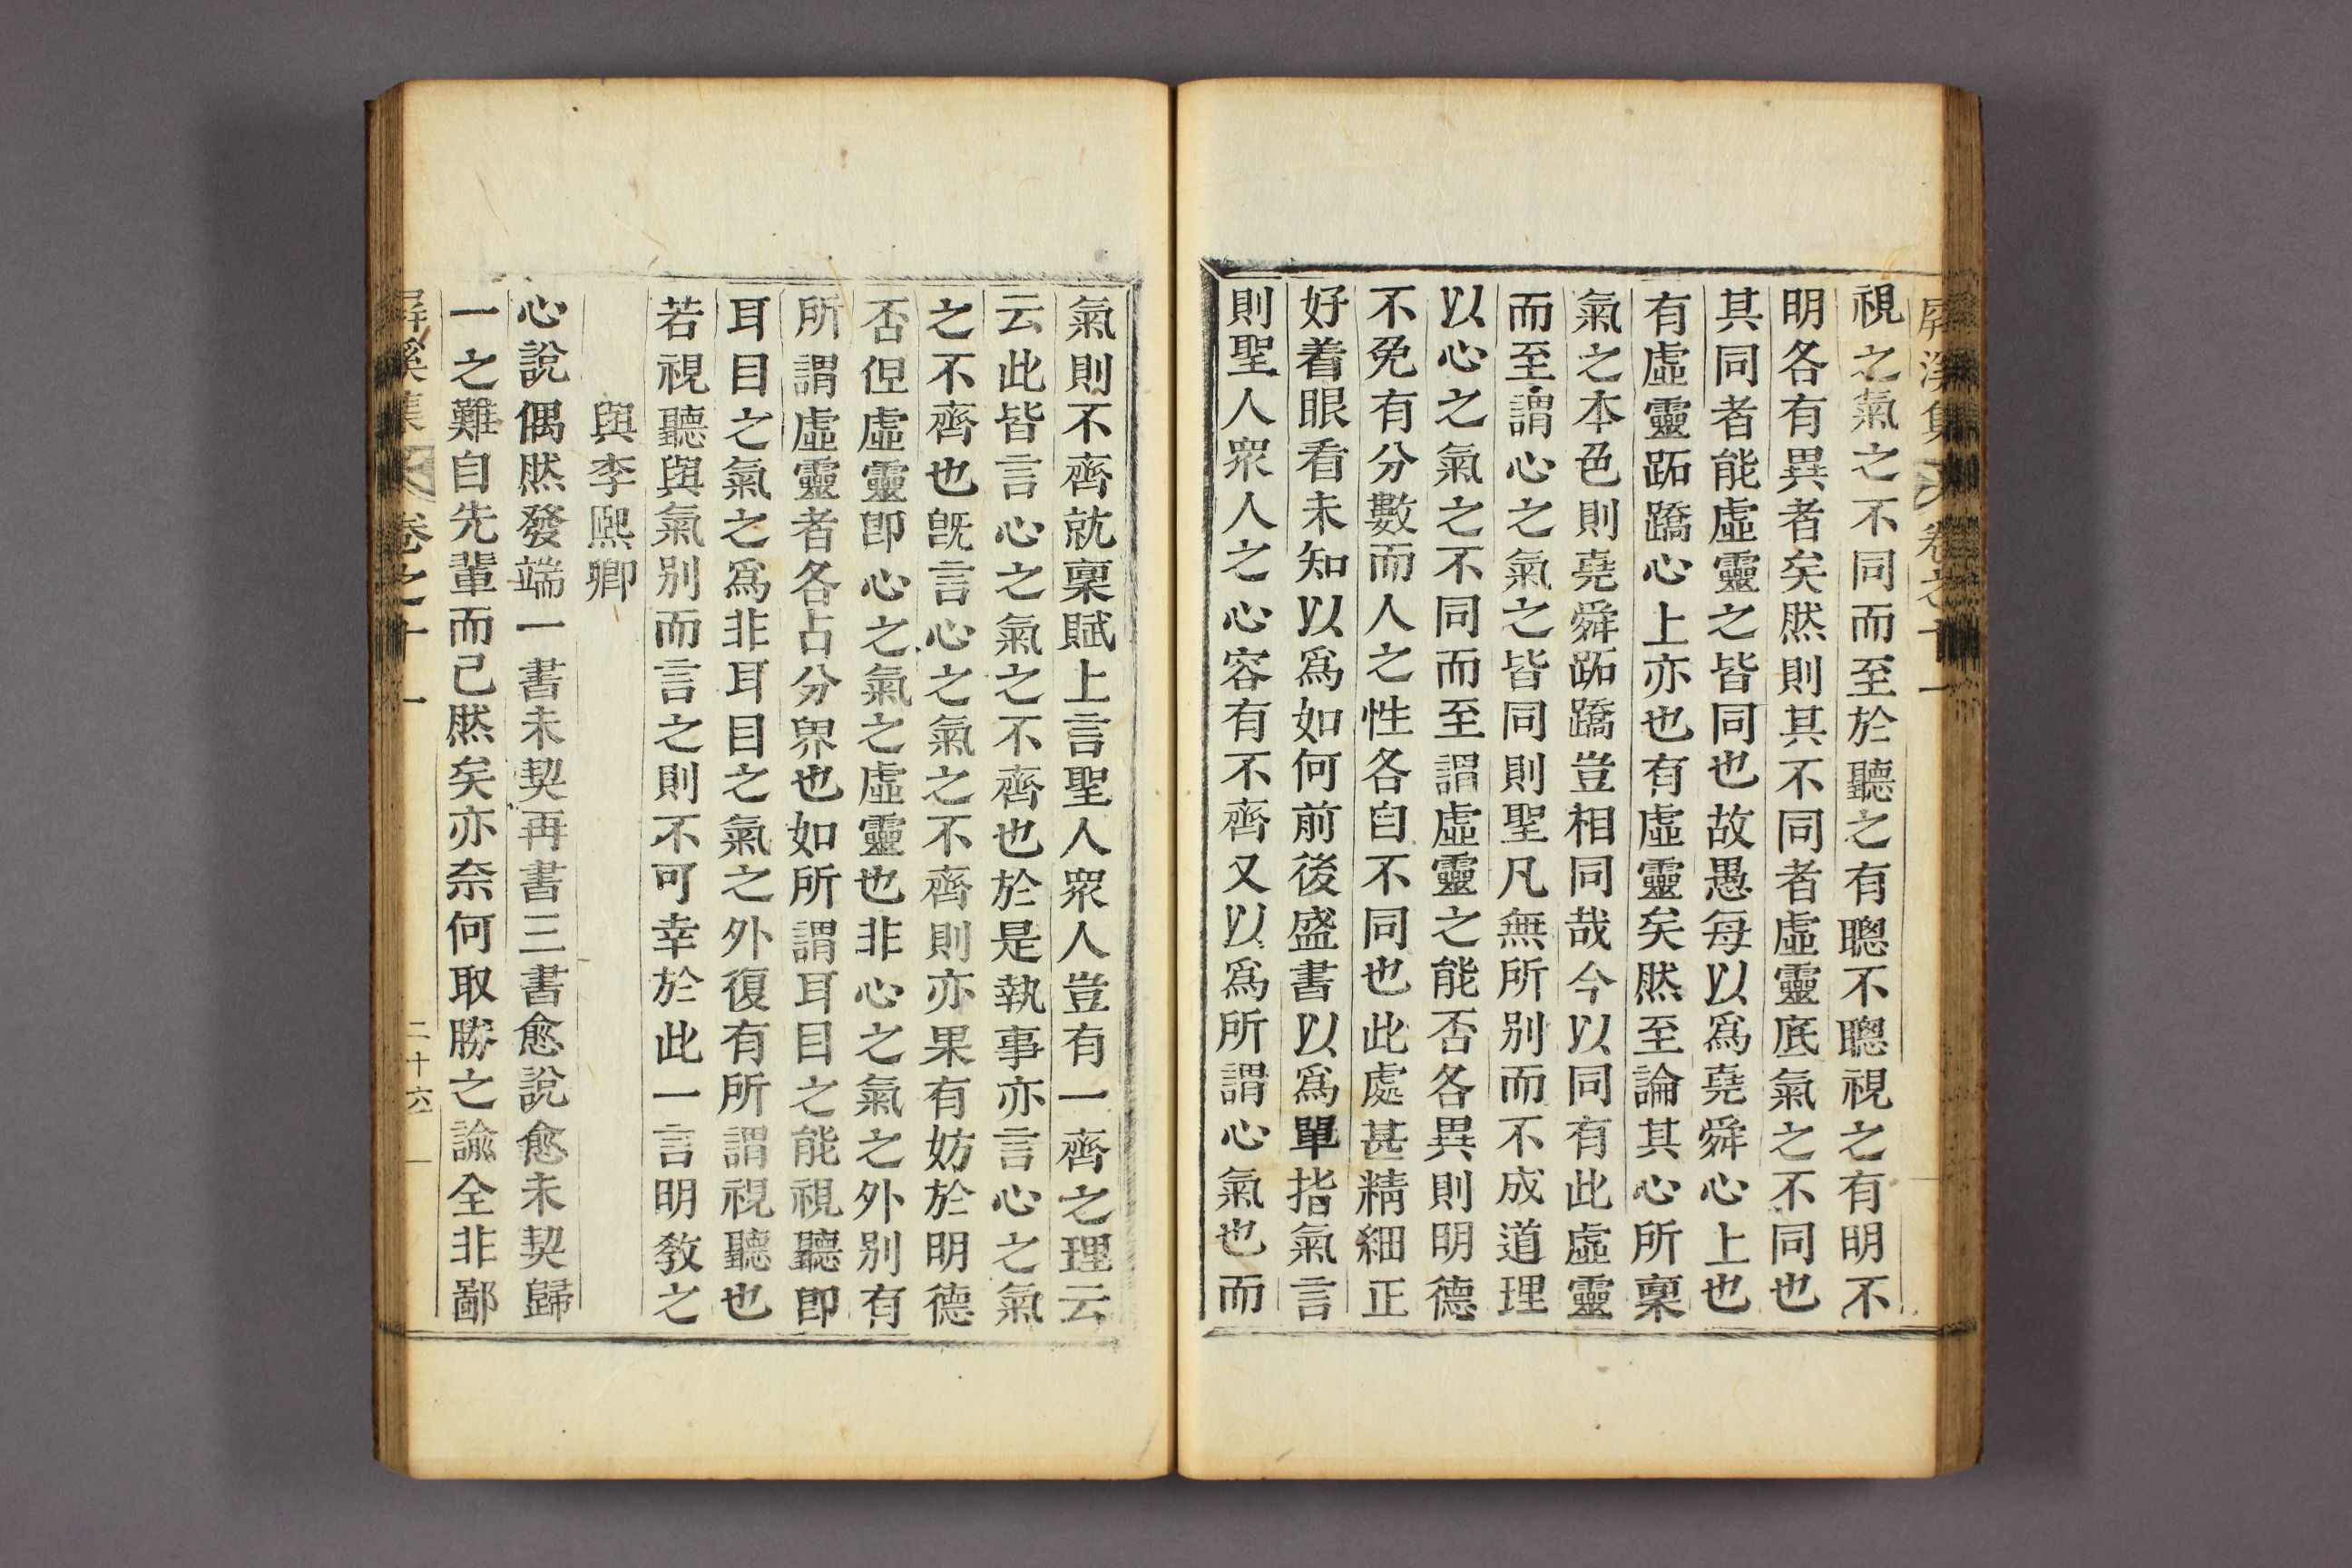 屛溪集 卷之十一
視之氣之不同而至於聽之有聰不聰視之有明不
明各有異者矣然則其不同者虛靈底氣之不同也
其同者能虛靈之皆同也故愚每以爲堯舜心上也
有虛靈跖蹻心上亦也有虛靈矣然至論其心所稟
氣之本色則堯舜跖蹻豈相同哉今以同有此虛靈
而至謂心之氣之皆同則聖凡無所別而不成道理
以心之氣之不同而至謂虛靈之能否各異則明德
不免有分數而人之性各自不同也此處甚精細正
好着眼看未知以爲如何前後盛書以爲單指氣言
則聖人衆人之心容有不齊又以爲所謂心氣也而
氣則不齊就稟賦上言聖人衆人豈有一齊之理云
云此皆言心之氣之不齊也於是執事亦言心之氣
之不齊也旣言心之氣之不齊則亦果有妨於明德
否但虛靈卽心之氣之虛靈也非心之氣之外別有
所謂虛靈者各占分界也如所謂耳目之能視聽卽
耳目之氣之爲非耳目之氣之外復有所謂視聽也
若視聽與氣別而言之則不可幸於此一言明敎之
與李熙卿
心說偶然發端一書未契再書三書愈說愈未契歸
一之難自先輩而已然矣亦奈何取勝之諭全非鄙
屛溪集 卷之十一 二十六